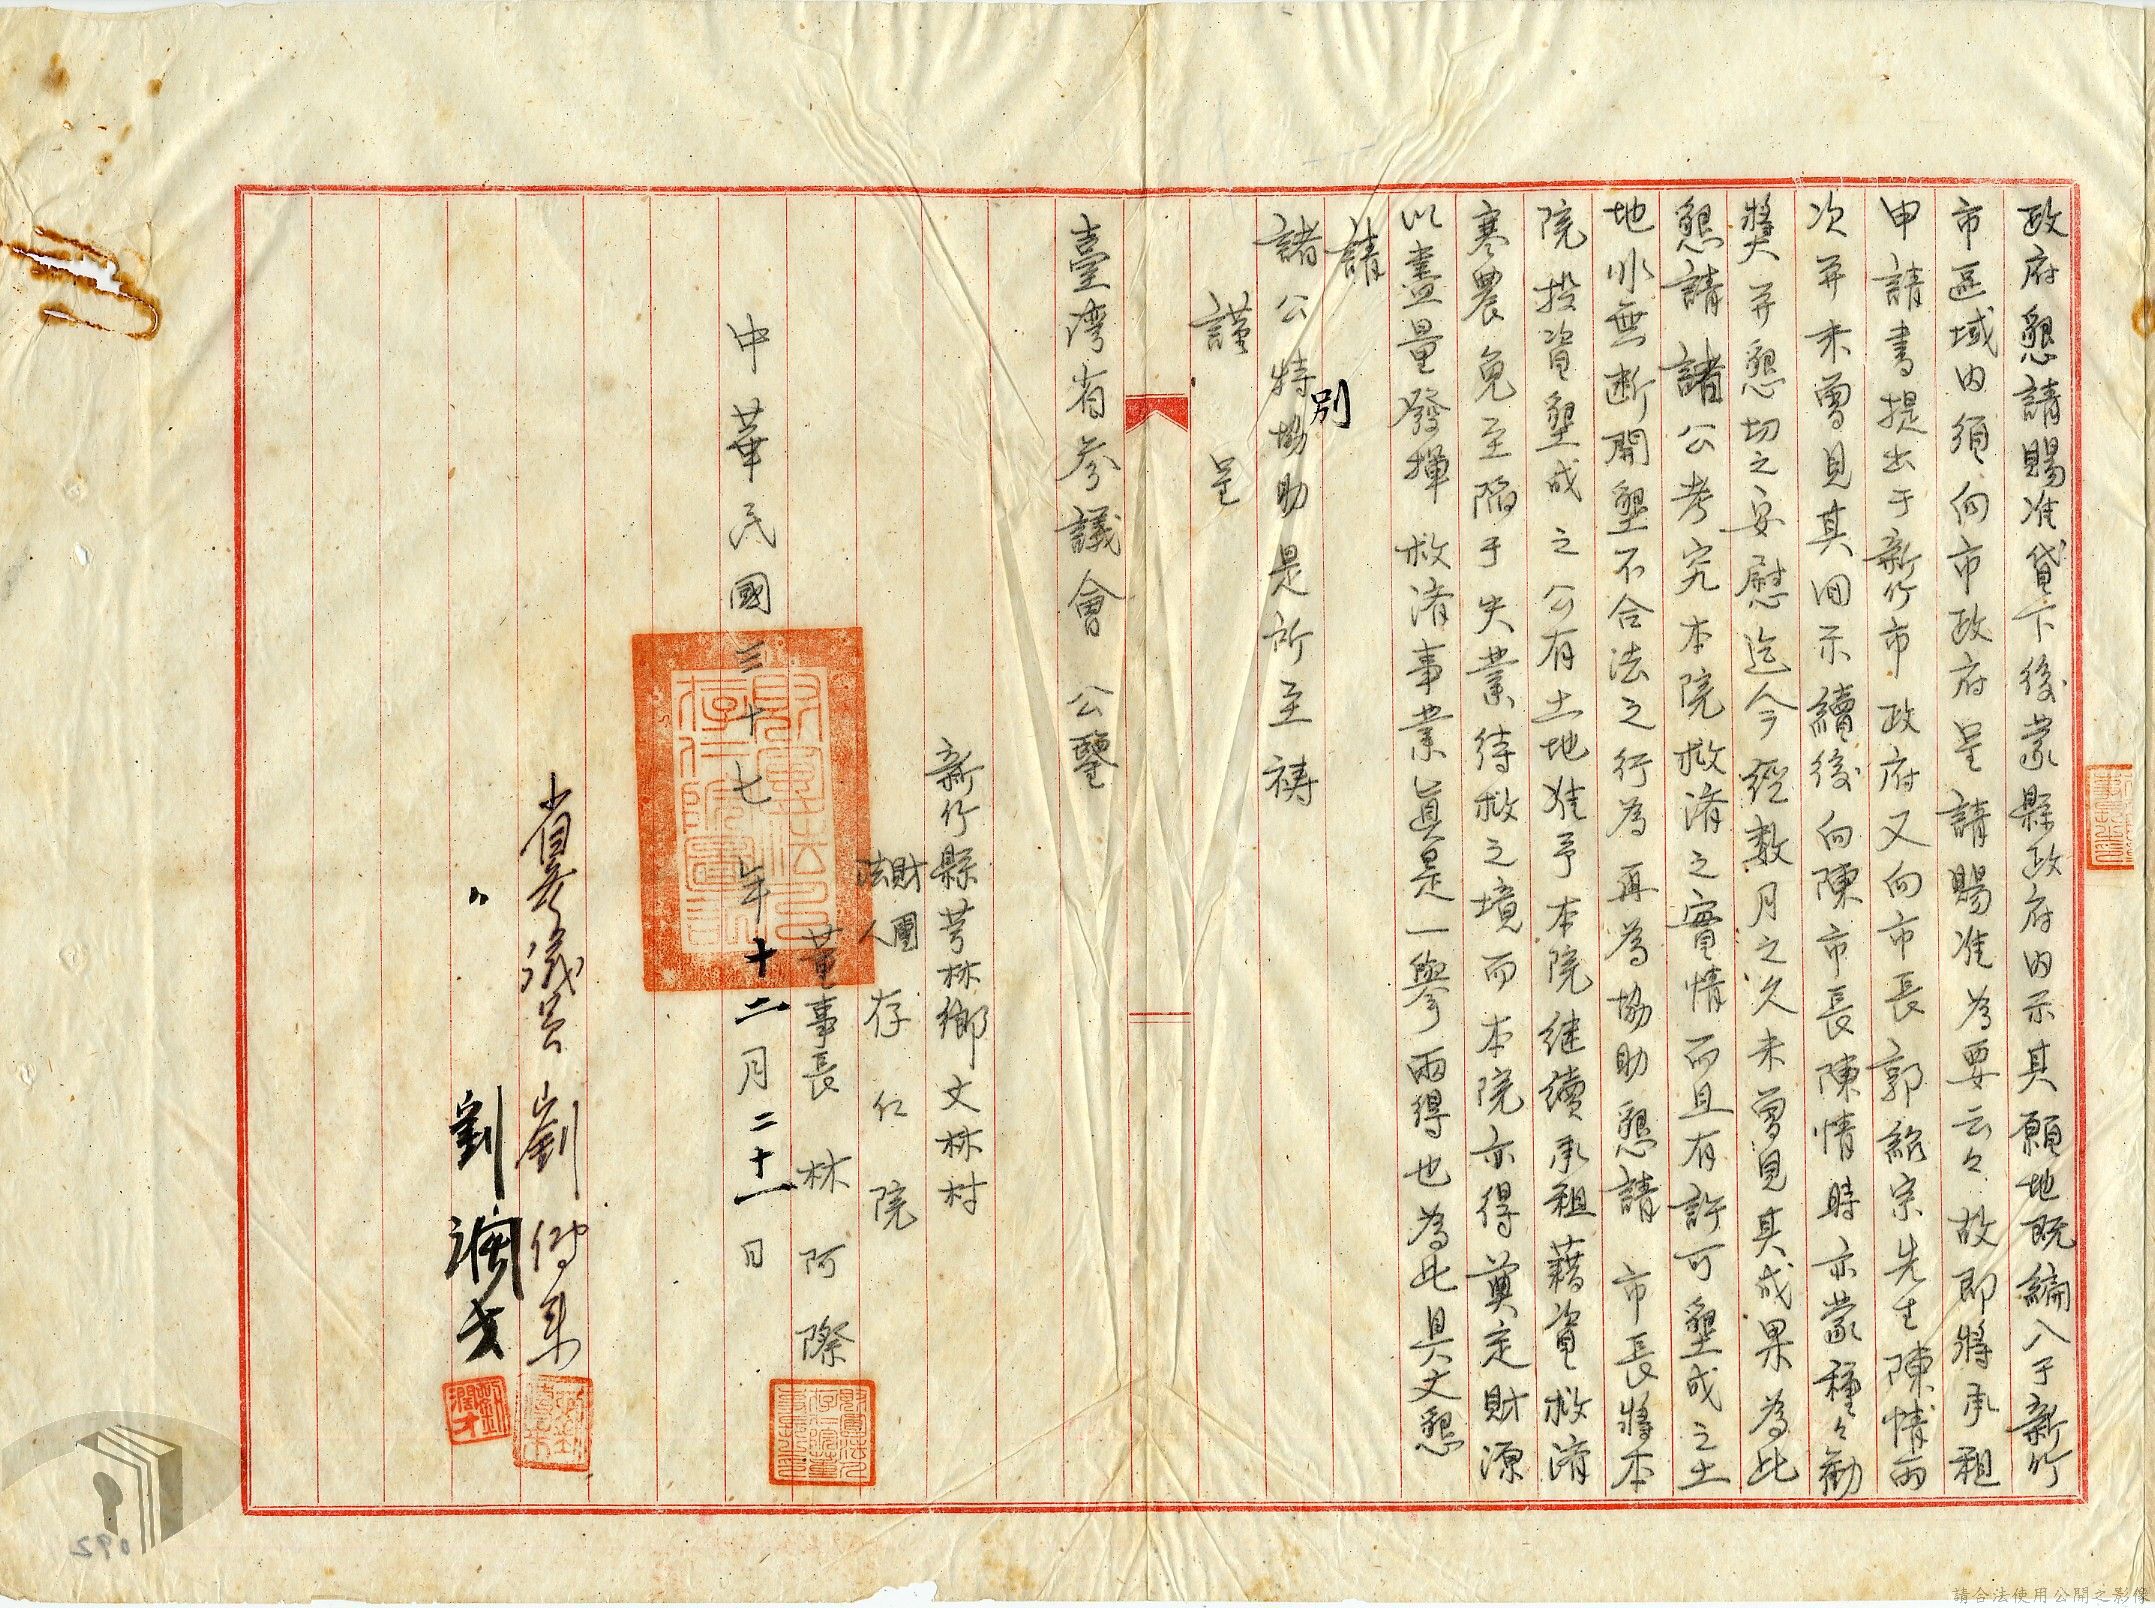 政府懇請賜准貸下後蒙縣政府內示其願地既編入于新竹
市區域內須向市政府呈請賜准為要云々故即將承租
申請書提出于新竹市政府又向市長郭紹宗先生陳情兩
次并未曾見其回示續後向陳市長陳情時亦蒙種々勸
獎并懇切之安慰迄今經數月之久未曾見其成果為此
懇請諸公考究本院救濟之實情而且有許可墾成之土
地以無斷開墾不合法之行為再為協助懇請市長將本
院投資墾成之公有土地准予本院継續承租藉資救濟
寒農免至陷于失業待救之境而本院亦得奠定財源
以盡量發揮救濟事業眞是一舉兩得也為此具文懇
請
諸公特別協助是所至禱
謹呈
臺湾省参議會公鑒
新竹縣芎林鄉文林村
財團法人存仁院
董事長林阿際
中華民國三十七年十二月二十一日
省參議員劉傳來
〃劉濶才
財團法人存仁院圖記
劉傳來
劉濶才
請合法使用公開之影像
092